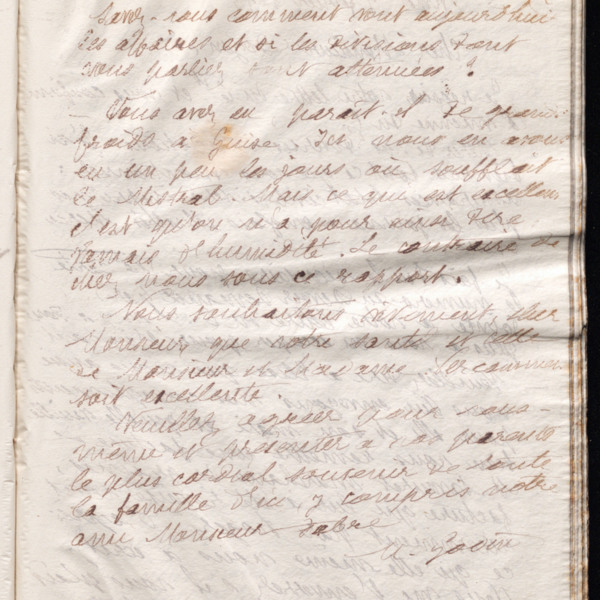 Savez-vous comment vont aujourd'hui
les affaires et si les divisions dont
vous parliez sont atténuées ?
— Vous avez eu, paraît-il de grands
froids à Guise. Ici nous en avons
eu un peu les jours où soufflait
le Mistral. Mais ce qui est excellent
c'est qu'on n'a pour ainsi dire
jamais d'humidité. Le contraire de
chez nous sous ce rapport.
Nous souhaitons vivement, cher
Monsieur que votre santé et celle
de Monsieur et Madame
soit excellente.
Veuillez agréer pour vous-
même et présenter à vos parents
le plus cordial souvenir de toute
la famille d'ici, y compris notre
ami Monsieur Fabre
M. Godin